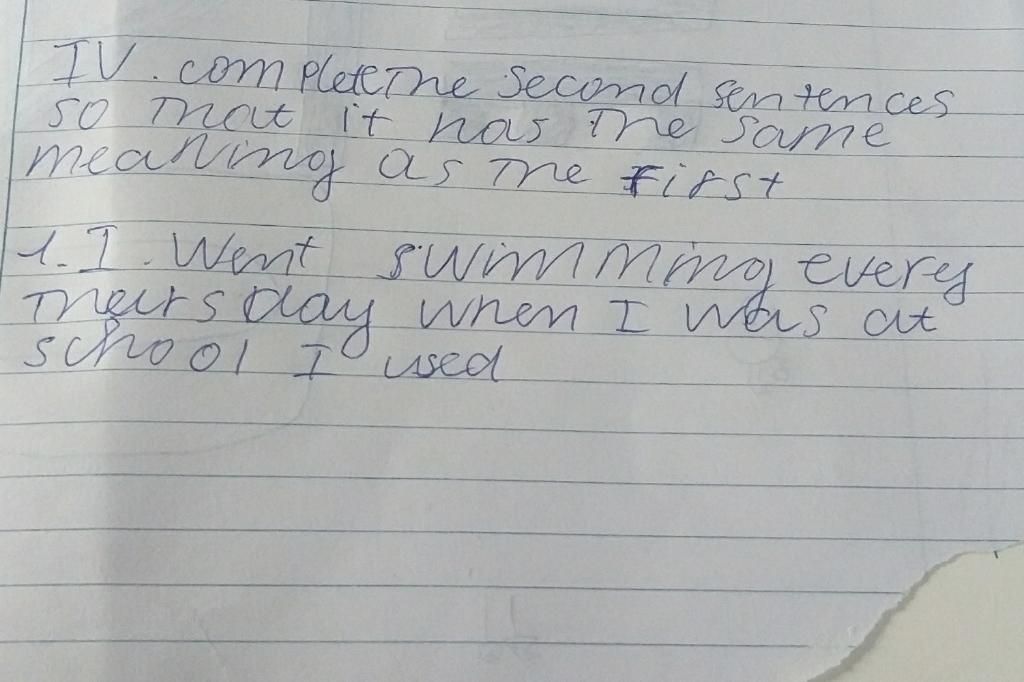 IV. complete the second sentences
so that it has the same
meaning as the first
1. I. Went swimming every
Thursday when I was at
school I used